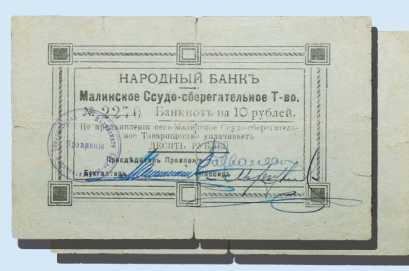 НАРОДНЫЙ БАНКЪ
Малинское Ссудо-сберегательное Т-во.
№ 227 Банкнотъ на 10 рублей.
По предъявленіи сего Малинское Ссудо-сберегатель-
ное Товарищество уплачиваетъ
ДЕСЯТЬ РУБЛЕЙ
Предсѣдатель Правленія
Бухгалтеръ Кассиръ
Правленіе